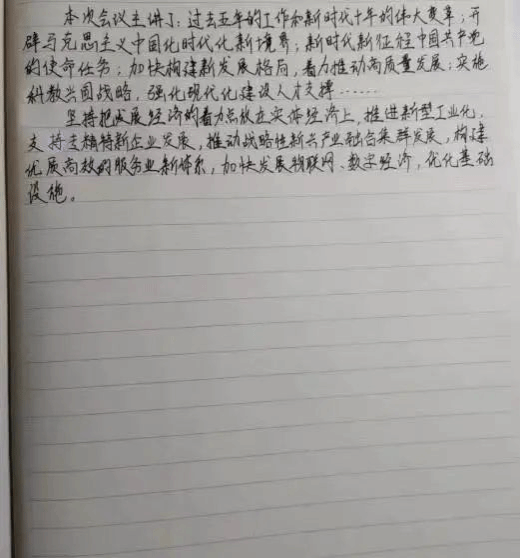 本次会议主讲了：过去五年的工作和新时代十年的伟大变革；开
辟马克思主义中国化时代化新境界；新时代新征程中国共产党
的使命任务；加快构建新发展格局，着力推动高质量发展；实施
科教兴国战略，强化现代化建设人才支撑……
坚持把发展经济的着力点放在实体经济上，推进新型工业化，
支持专精特新企业发展，推动战略性新兴产业融合集群发展，构建
优质高效的服务业新体系，加快发展物联网、数字经济，优化基础
设施。